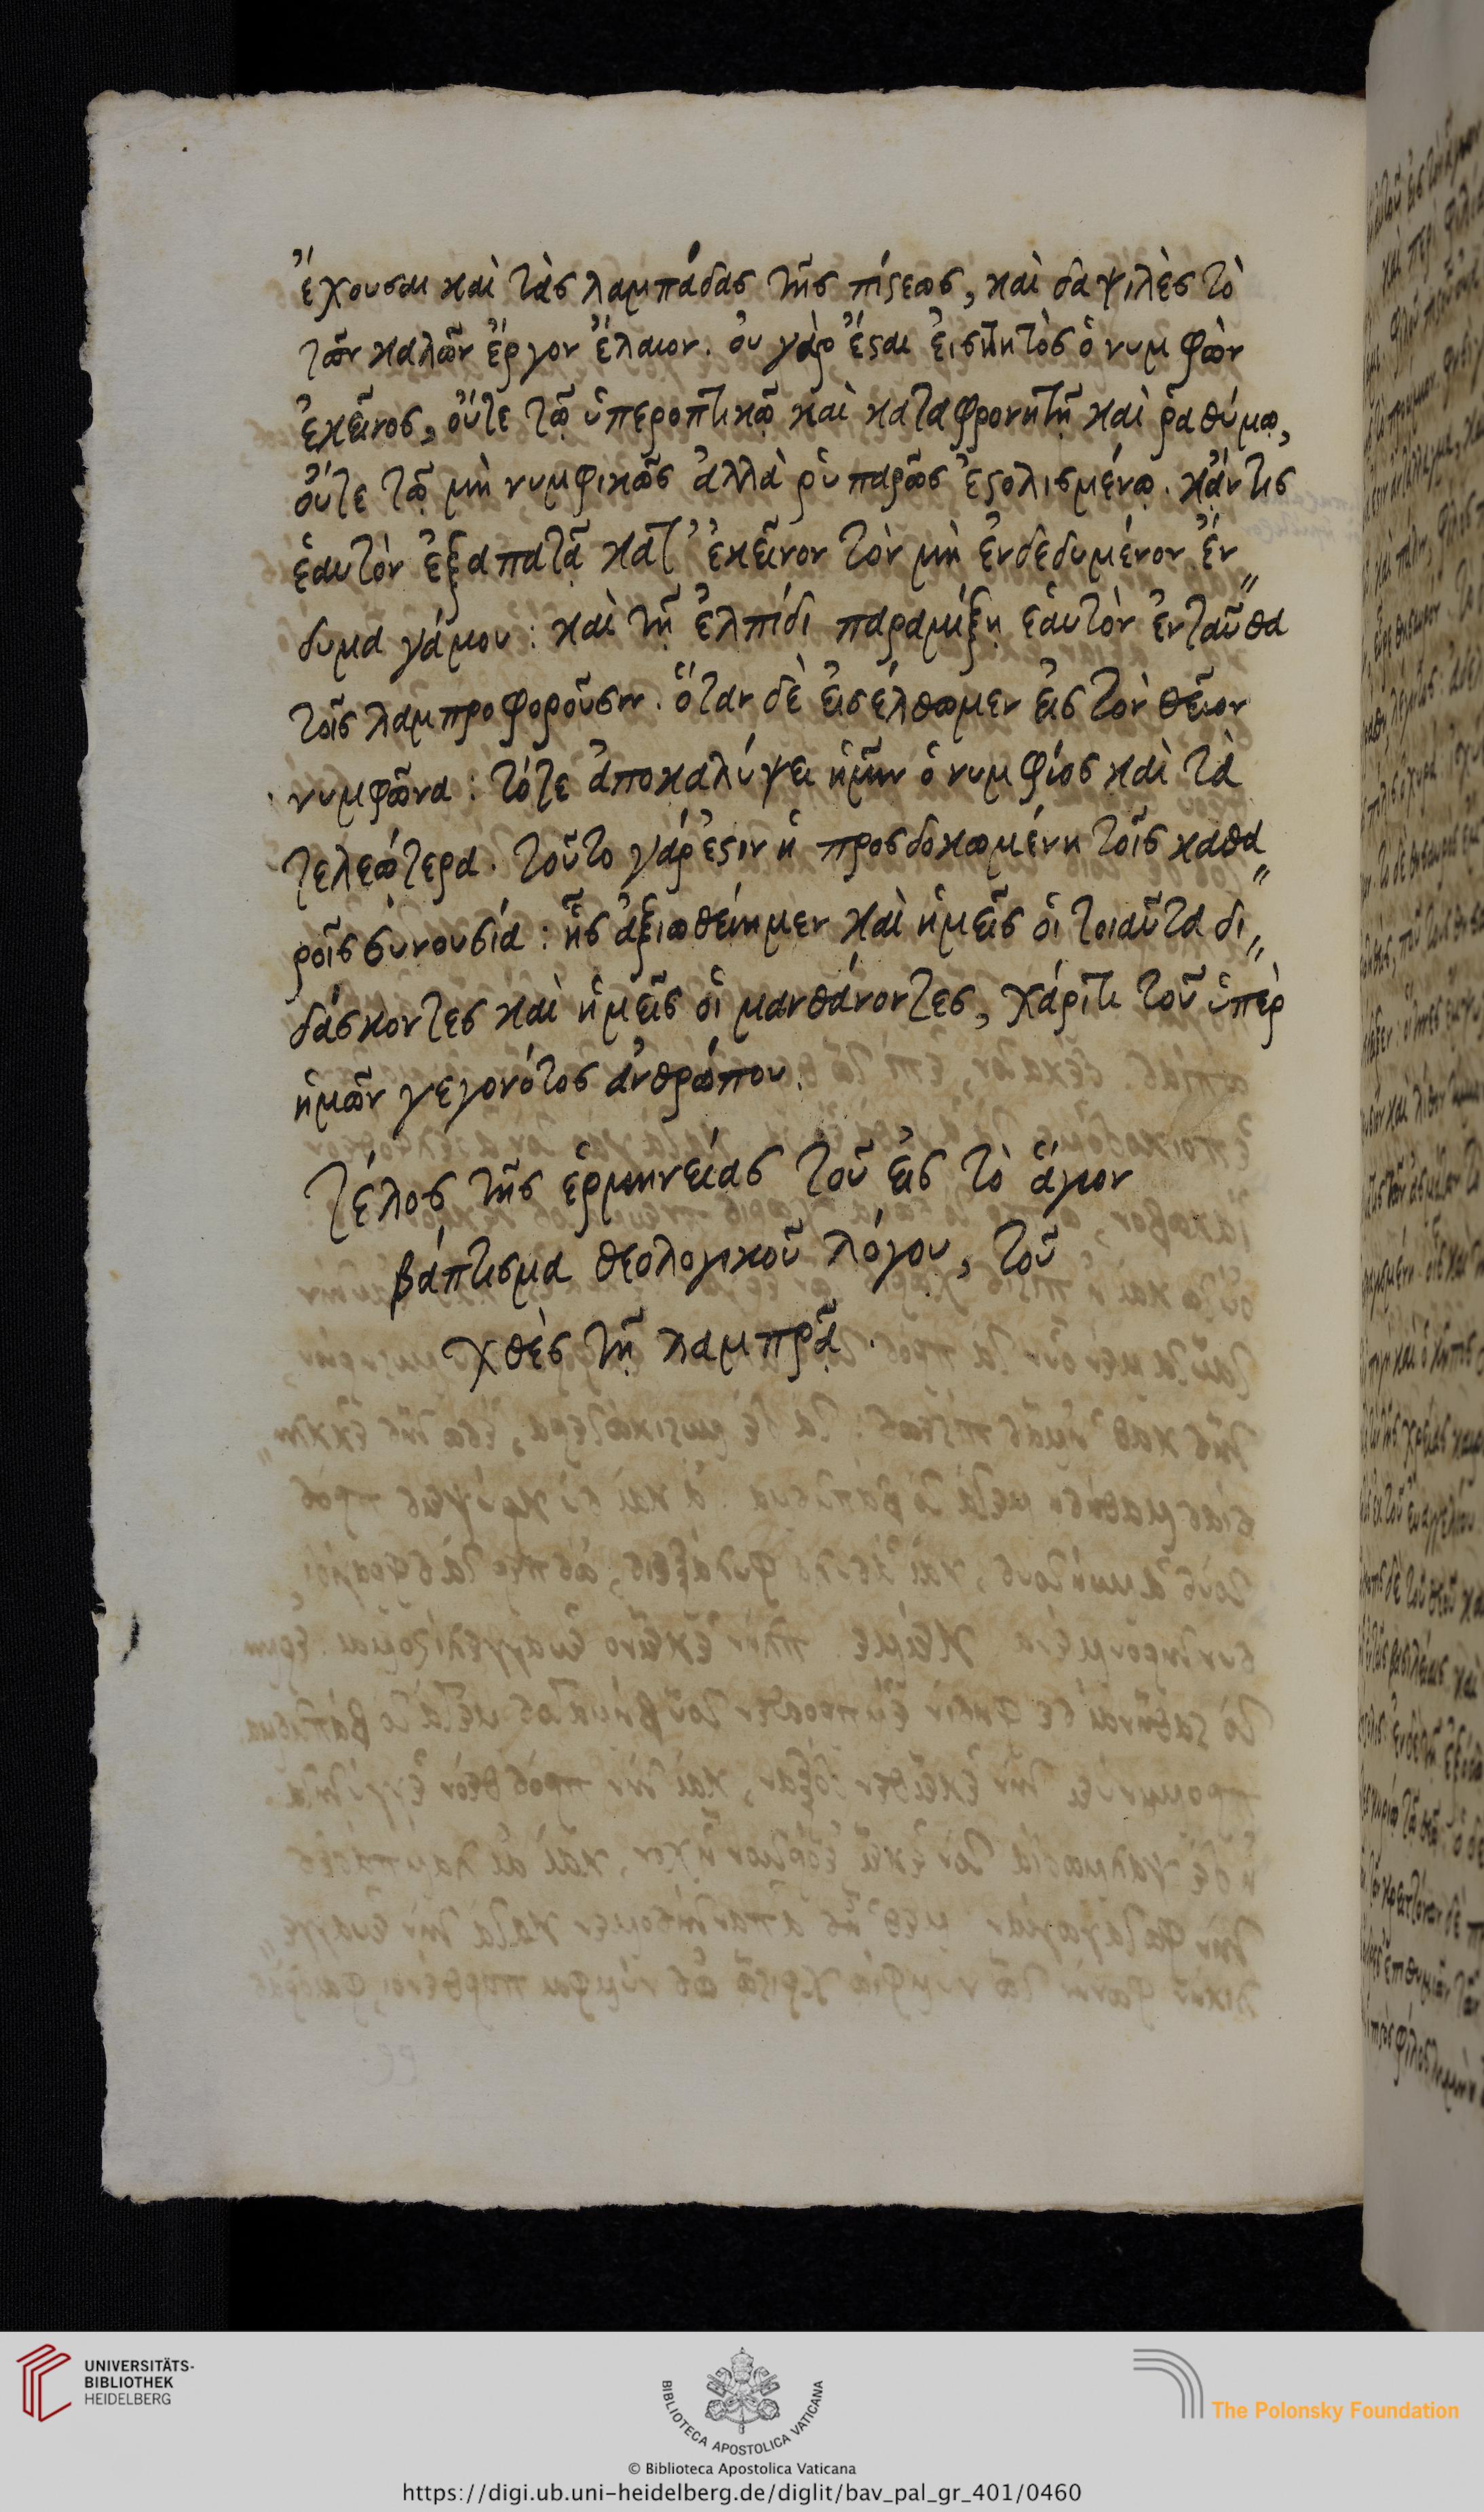 ἔχουσαι καὶ τὰς λαμπάδας τῆς πίστεως, καὶ δαψιλὲς τὸ
τῶν καλῶν ἔργον ἔλαιον. οὐ γὰρ ἔσται εἰσιτητὸς ὁ νυμφὼν
ἐκεῖνος, οὔτε τῷ ὑπεροπτικῷ καὶ καταφρονητῇ καὶ ῥαθύμῳ,
οὔτε τῷ μὴ νυμφικῶς ἀλλὰ ῥυπαρῶς ἐστολισμένῳ. κἄν τις
ἑαυτὸν ἐξαπατᾷ κατ' ἐκεῖνον τὸν μὴ ἐνδεδυμένον ἔν〃
δυμα γάμου: καὶ τῇ ἐλπίδι παραμίξῃ ἑαυτὸν ἐνταῦθα
τοῖς λαμπροφοροῦσιν. ὅταν δὲ εἰσέλθωμεν εἰς τὸν θεῖον
νυμφῶνα: τότε ἀποκαλύψει ἡμῖν ὁ νυμφίος καὶ τὰ
τελεώτερα. τοῦτο γάρ ἐστιν ἡ προσδοκωμένη τοῖς καθα〃
ροῖς συνουσία: ἧς ἀξιωθείημεν καὶ ἡμεῖς οἱ τοιαῦτα δι〃
δάσκοντες καὶ ἡμεῖς οἱ μανθάνοντες, χάριτι τοῦ ὑπὲρ
ἡμῶν γεγονότος ἀνθρώπου.
Τέλος τῆς ἑρμηνείας τοῦ εἰς τὸ ἅγιον
βάπτισμα θεολογικοῦ λόγου, τοῦ
χθὲς τῇ λαμπρᾷ.
UNIVERSITÄTS-
BIBLIOTHEK
HEIDELBERG
BIBLIOTECA APOSTOLICA VATICANA
The Polonsky Foundation
© Biblioteca Apostolica Vaticana
https://digi.ub.uni-heidelberg.de/diglit/bav_pal_gr_401/0460